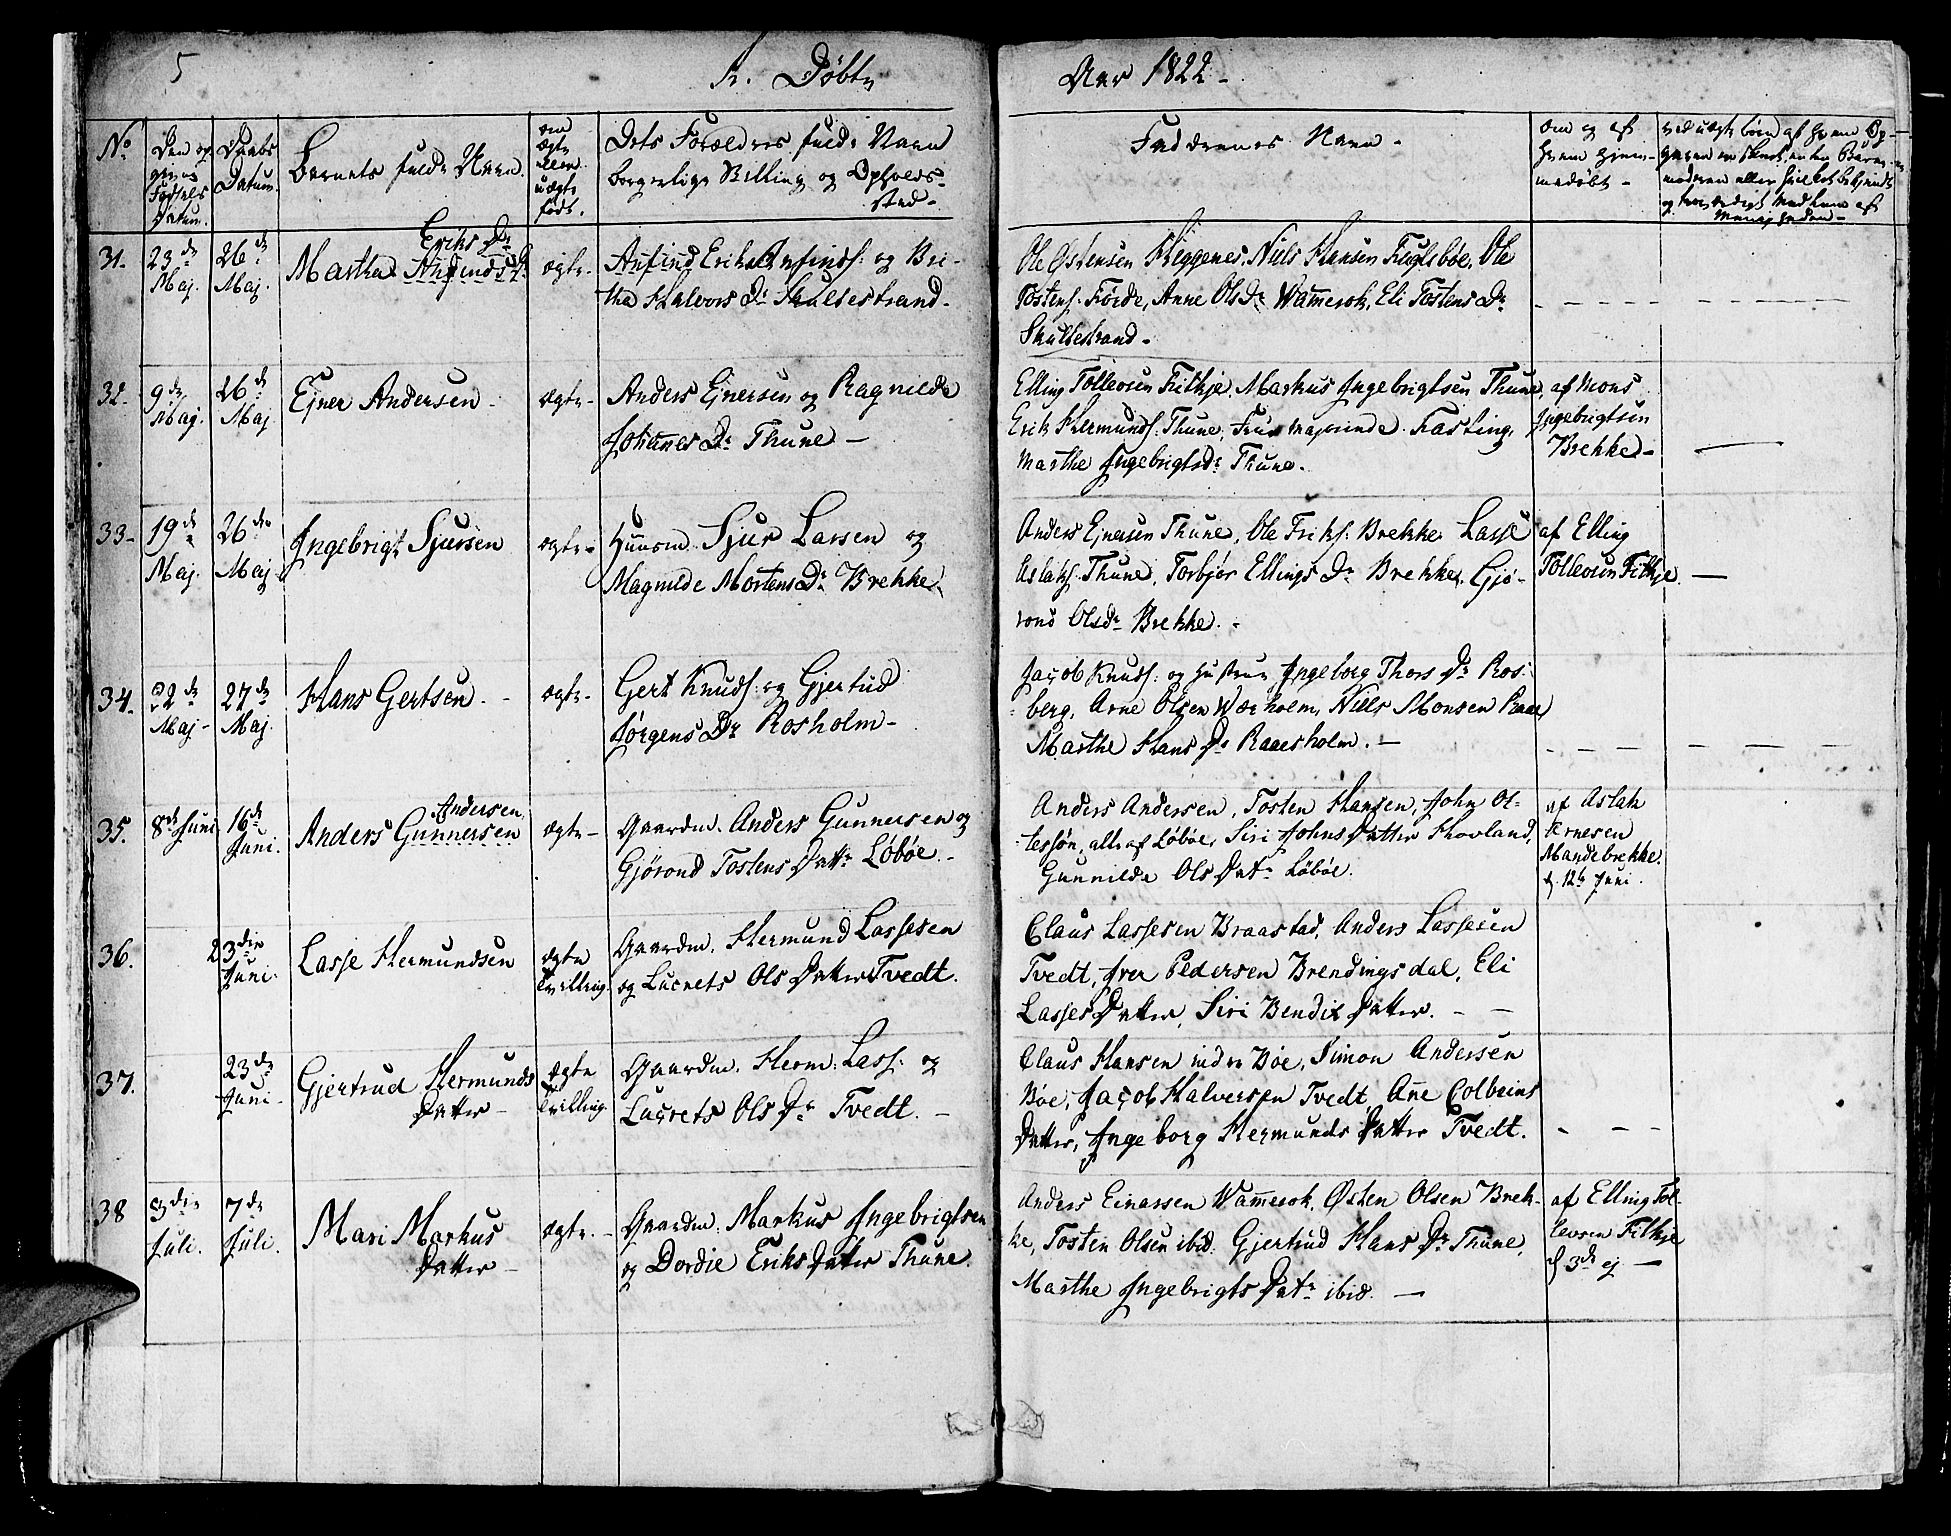 5
Døbte
Aar 1822
No
Den og
Fødsels
Datum.
Daabs
Datum.
Barnets fulde Navn.
om
ægte
eller
uægte
født.
Dets Forældres fulde Navn
borgerlige Stilling og Opholds-
sted.
Faddernes Navn.
om og af
hvem hjem-
medøbt
31.
23de
Maj.
26de
Maj.
Eriks Dr
Martha Anfinds Dr
ægte
Anfind Erik Anfinds: og Bri-
tha Halvors Dr Skulsestrand.
Ole Østensen Heggenes, Niels Hansen Fuglebøe, Ole
Tostens. Førde, Anne Ols Dr Wammerok, Eli Tostens Dr
Skulsestrand.
32.
9de
Maj.
26de
Maj
Ejner Andersen
ægte
Anders Ejnersen og Ragnilde
Johannes Dr Thune
Elling Tollevsen Fithje, Markus Ingebrigtsen Thune,
Erik Hermunds. Thune, Frue Majorinde Fasting,
Marthe Ingebrigtsdr Thune.
af Mons
Ingebrigtsen
Brekke
33
19de
Maj.
26de
Maj.
Ingebrigt Sjursen
ægte
Huusm. Sjur Larsen og
Magnilde Mortens Dr Brekke
Anders Ejnersen Thune, Ole Eriks: Brekke, Lasse
Aslaks. Thune, Torbjør Ellings Dr Brekke, Gjø-
rond Olsdr Brekke.
af Elling
Tollevsen Fithje.
34.
22de
Maj
27de
Maj.
Hans Gertsen
ægte
Gert Knuds: og Gjertud
Jørgens Dr Rosholm
Jacob Knuds: og Hustrue Ingeborg Thors Dr Ros-
berg, Arne Olsen Wærholm, Niels Monsen Raae
Marthe Hans Dr Raaesholm.
35.
8de Juni
16de
Juni.
Andersen
Anders Gunnersen
ægte
Gaardm. Anders Gunnersen og
Gjørond Tostens Dattr Løbøe.
Anders Andersen, Tosten Hansen, John Ol-
lessøn, alle af Løbøe, Siri Johns Datter Hovland,
Gunnilde Ols Datr Løbøe.
af Aslak
Arnesen
Mandebrekke.
d. 12te Juni.
36.
23die
Juni.
Lasse Hermundsen
ægte
Tvilling
Gaardm. Hermund Lassesen
og Lucrets Ols Datter Tvedt.
Claus Lassesen Braastad, Anders Lassesen
Tvedt, Iver Pedersen Brendingsdal, Eli
Lasses Datter, Siri Bendix Datter.
37.
23de
Juni
Gjertrud Hermunds
Datter
ægte
Tvilling
Gaardm. Herm: Lass: og
Lucrets Ols Dr Tvedt.
Claus Hansen nedre Bøe, Simon Andersen
Bøe, Jacob Halversen Tvedt, Anne Colbeins
Datter, Ingeborg Hermunds Datter Tvedt.
38
3die
Juli.
7de
Juli.
Mari Markus
Datter
ægte
Gaardm. Markus Ingebrigtsen
og Dordie Eriks Datter Thune.
Anders Einarsen Wammerok, Østen Olsen Brek-
ke, Tosten Olsen ibid. Gjertrud Hans Dr Thune,
Marthe Ingebrigts Datr ibid.
af Elling Tol-
levsen Fithje
d 3de ej